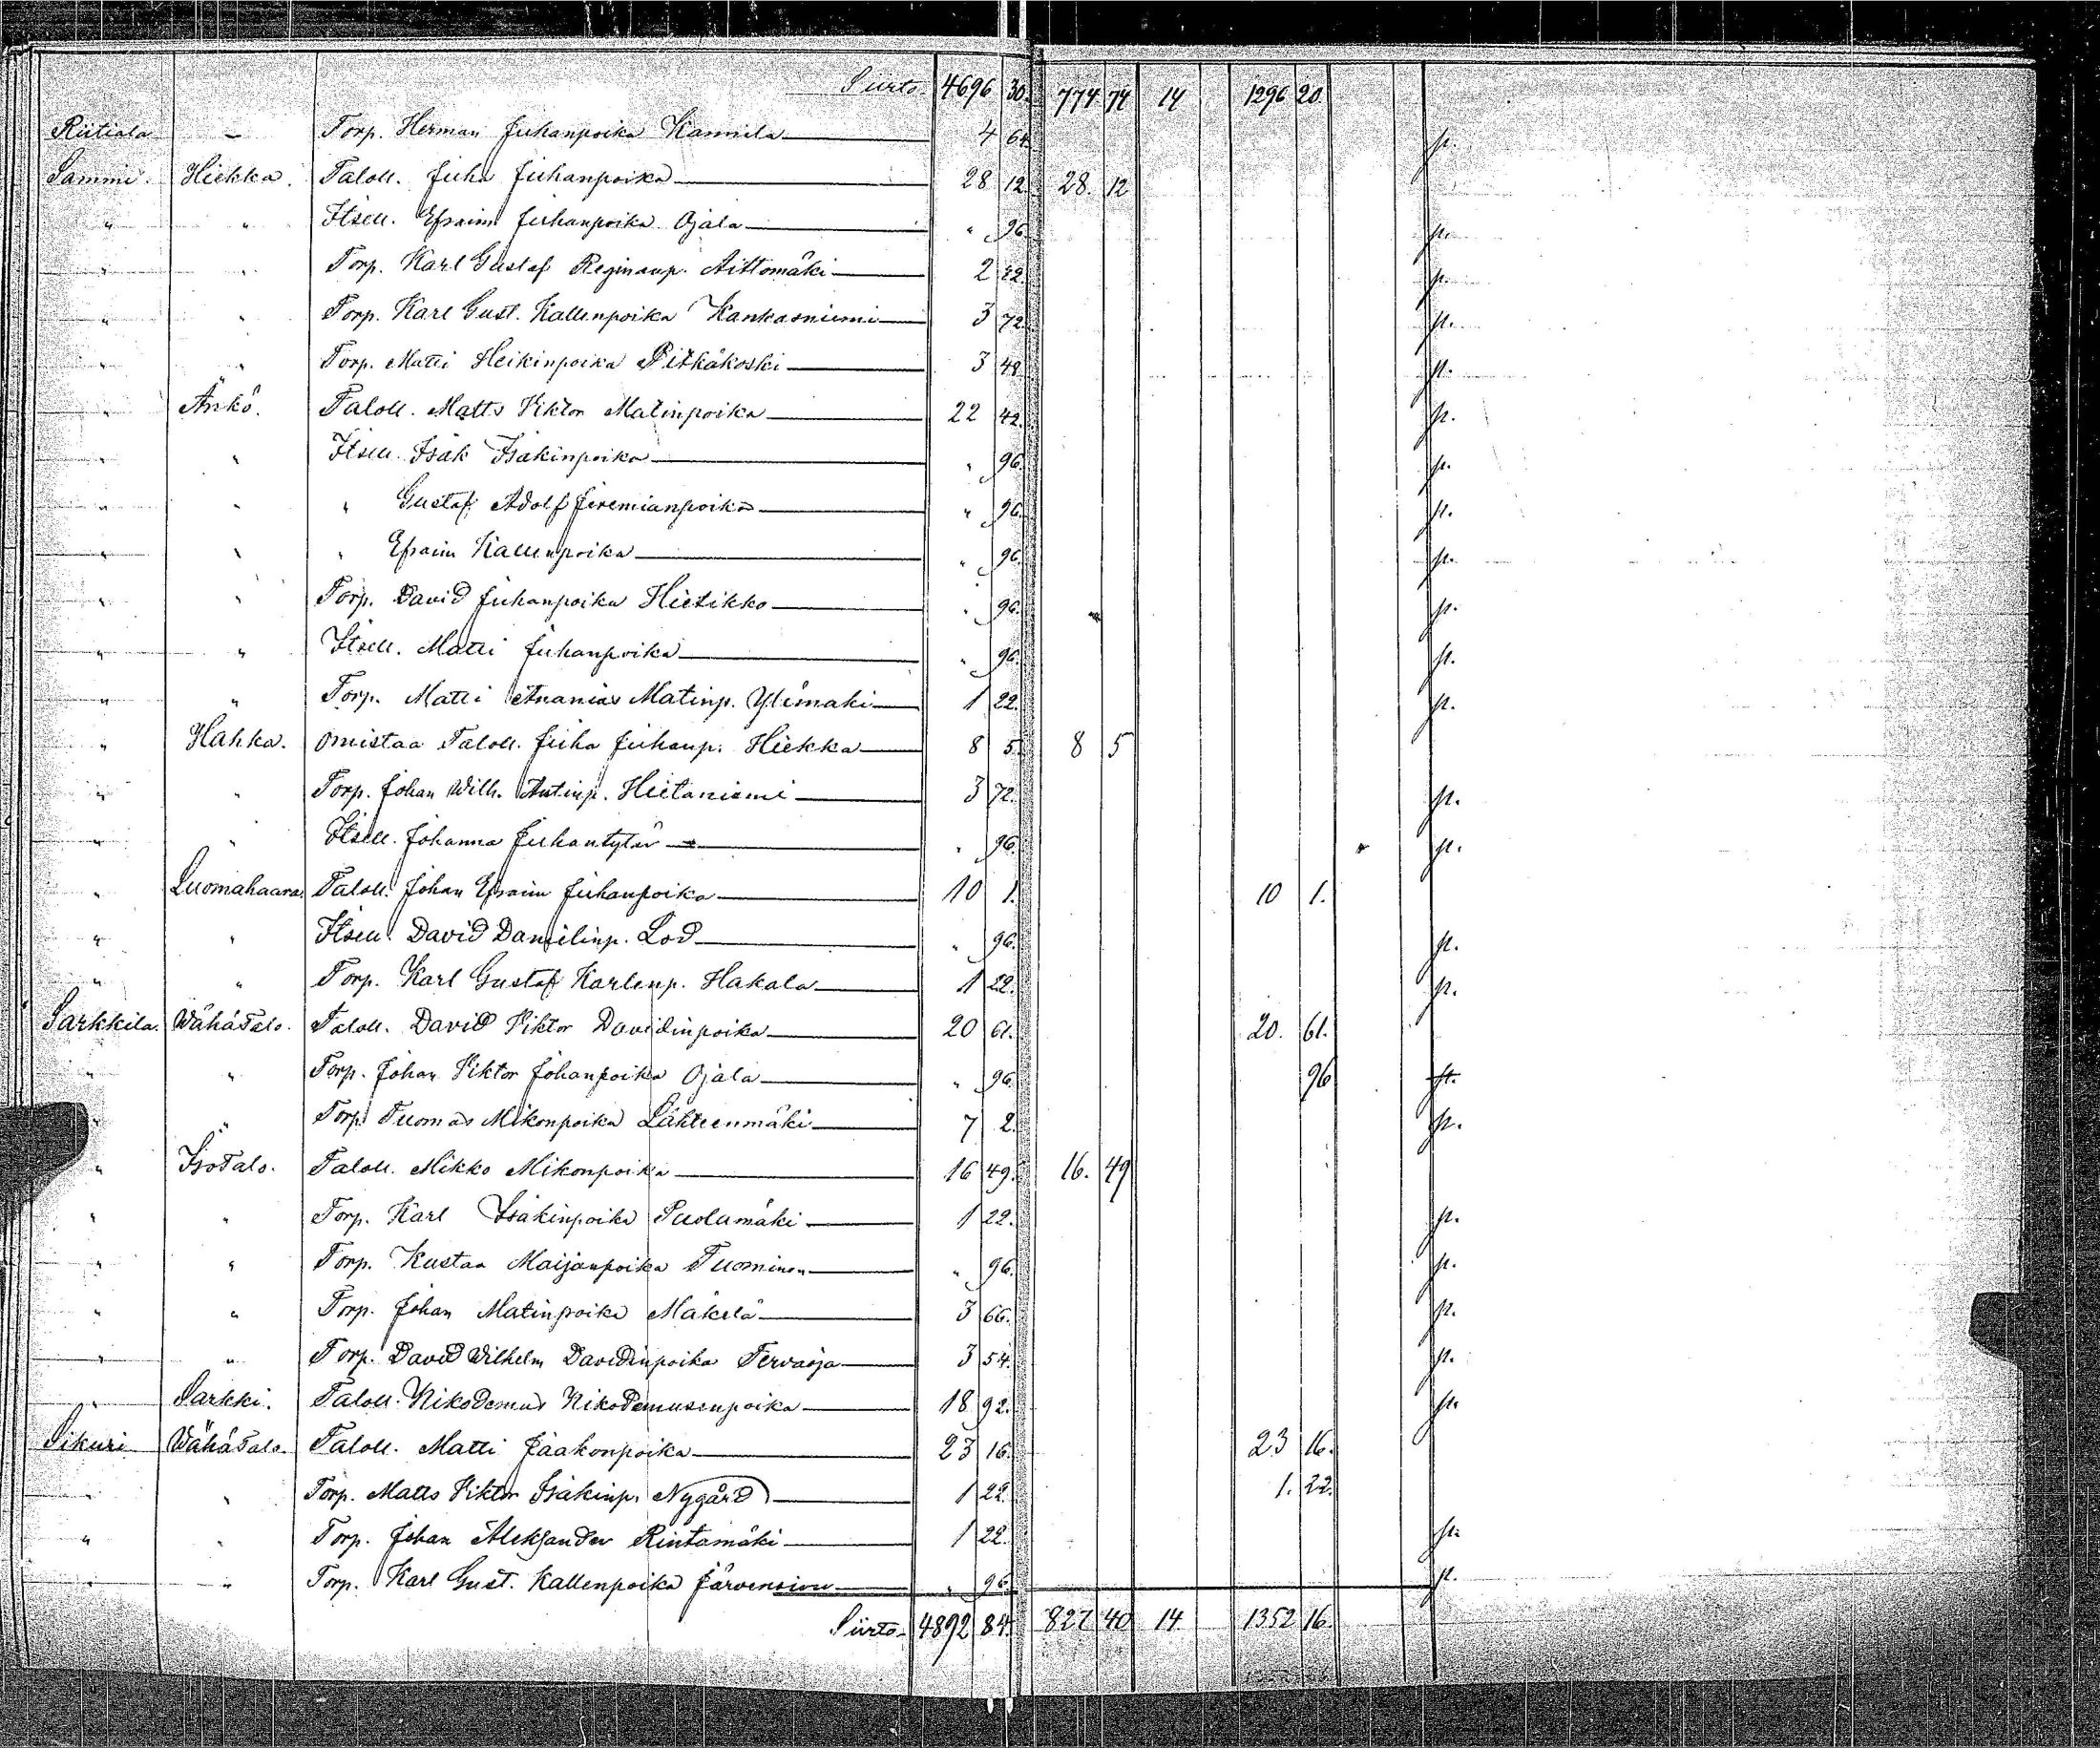 Siirto 4696 30. 774 74 14 1296 20
Riitiala - Torp. Herman Juhanpoika Kannila 4 64. pt.
Sammi. Hiekka. Taloll. Juha Juhanpoika 28 12. 28. 12
" " Itsell. Efraim Juhanpoika Ojala " 96. pt.
" " Torp. Karl Gustaf Reginanp. Aittomäki 2 22. pt.
" " Torp. Karl Gust. Kallenpoika Kankasniemi 3 72. pt.
" " Torp. Matti Heikinpoika Pitkäkoski 3 48. pt.
" Änkö. Taloll. Matts Viktor Matinpoika 22 42. pt.
" " Itsell. Isak Isakinpoika " 96. pt.
" " " Gustaf Adolf Jeremianpoika " 96. pt.
" " " Efraim Kallenpoika " 96. pt.
" " Torp. David Juhanpoika Hietikko " 96. pt.
" " Itsell. Matti Juhanpoika " 96. pt.
" " Torp. Matti Ananias Matinp. Ylimäki 1 22. pt.
" Hahka. Omistaa Taloll. Juha Juhanp. Hiekka 8 5. 8 5
" " Torp. Johan Wilh. Antinp. Hietaniemi 3 72. pt.
" " Itsell. Johanna Juhantytär " 96. pt.
" Luomahaara. Taloll. Johan Efraim Juhanpoika 10 1. 10 1.
" " Itsell. David Danielinp. Lod " 96. pt.
" " Torp. Karl Gustaf Karlenp. Hakala 1 22. pt.
Sarkkila. WähäTalo. Taloll. David Viktor Davidinpoika 20 61. 20. 61.
" " Torp. Johan Viktor Johanpoika Ojala " 96. 96 pt.
" " Torp. Tuomas Mikonpoika Lähteenmäki 7 2. pt.
" IsoTalo. Taloll. Mikko Mikonpoika 16 49. 16. 49
" " Torp. Karl Isakinpoika Puolumäki 1 22. pt.
" " Torp. Kustaa Maijanpoika Tuominen " 96. pt.
" " Torp. Johan Matinpoika Mäkelä 3 66. pt.
" " Torp. David Wilhelm Davidinpoika Tervaoja 3 54. pt.
" Sarkki. Taloll. Nikodemus Nikodemusenpoika 18 92. pt.
Sikuri WähäTalo. Taloll. Matti Jaakonpoika 23 16. 23 16.
" " Torp. Matts Viktor Isakinp. Nygård 1 22. 1. 22.
" " Torp. Johan Aleksander Rintamäki 1 22. pt.
" " Torp. Karl Gust. Kallenpoika Järvensivu " 96 pt.
Siirto 4892 84. 827 40 14. 1352 16.